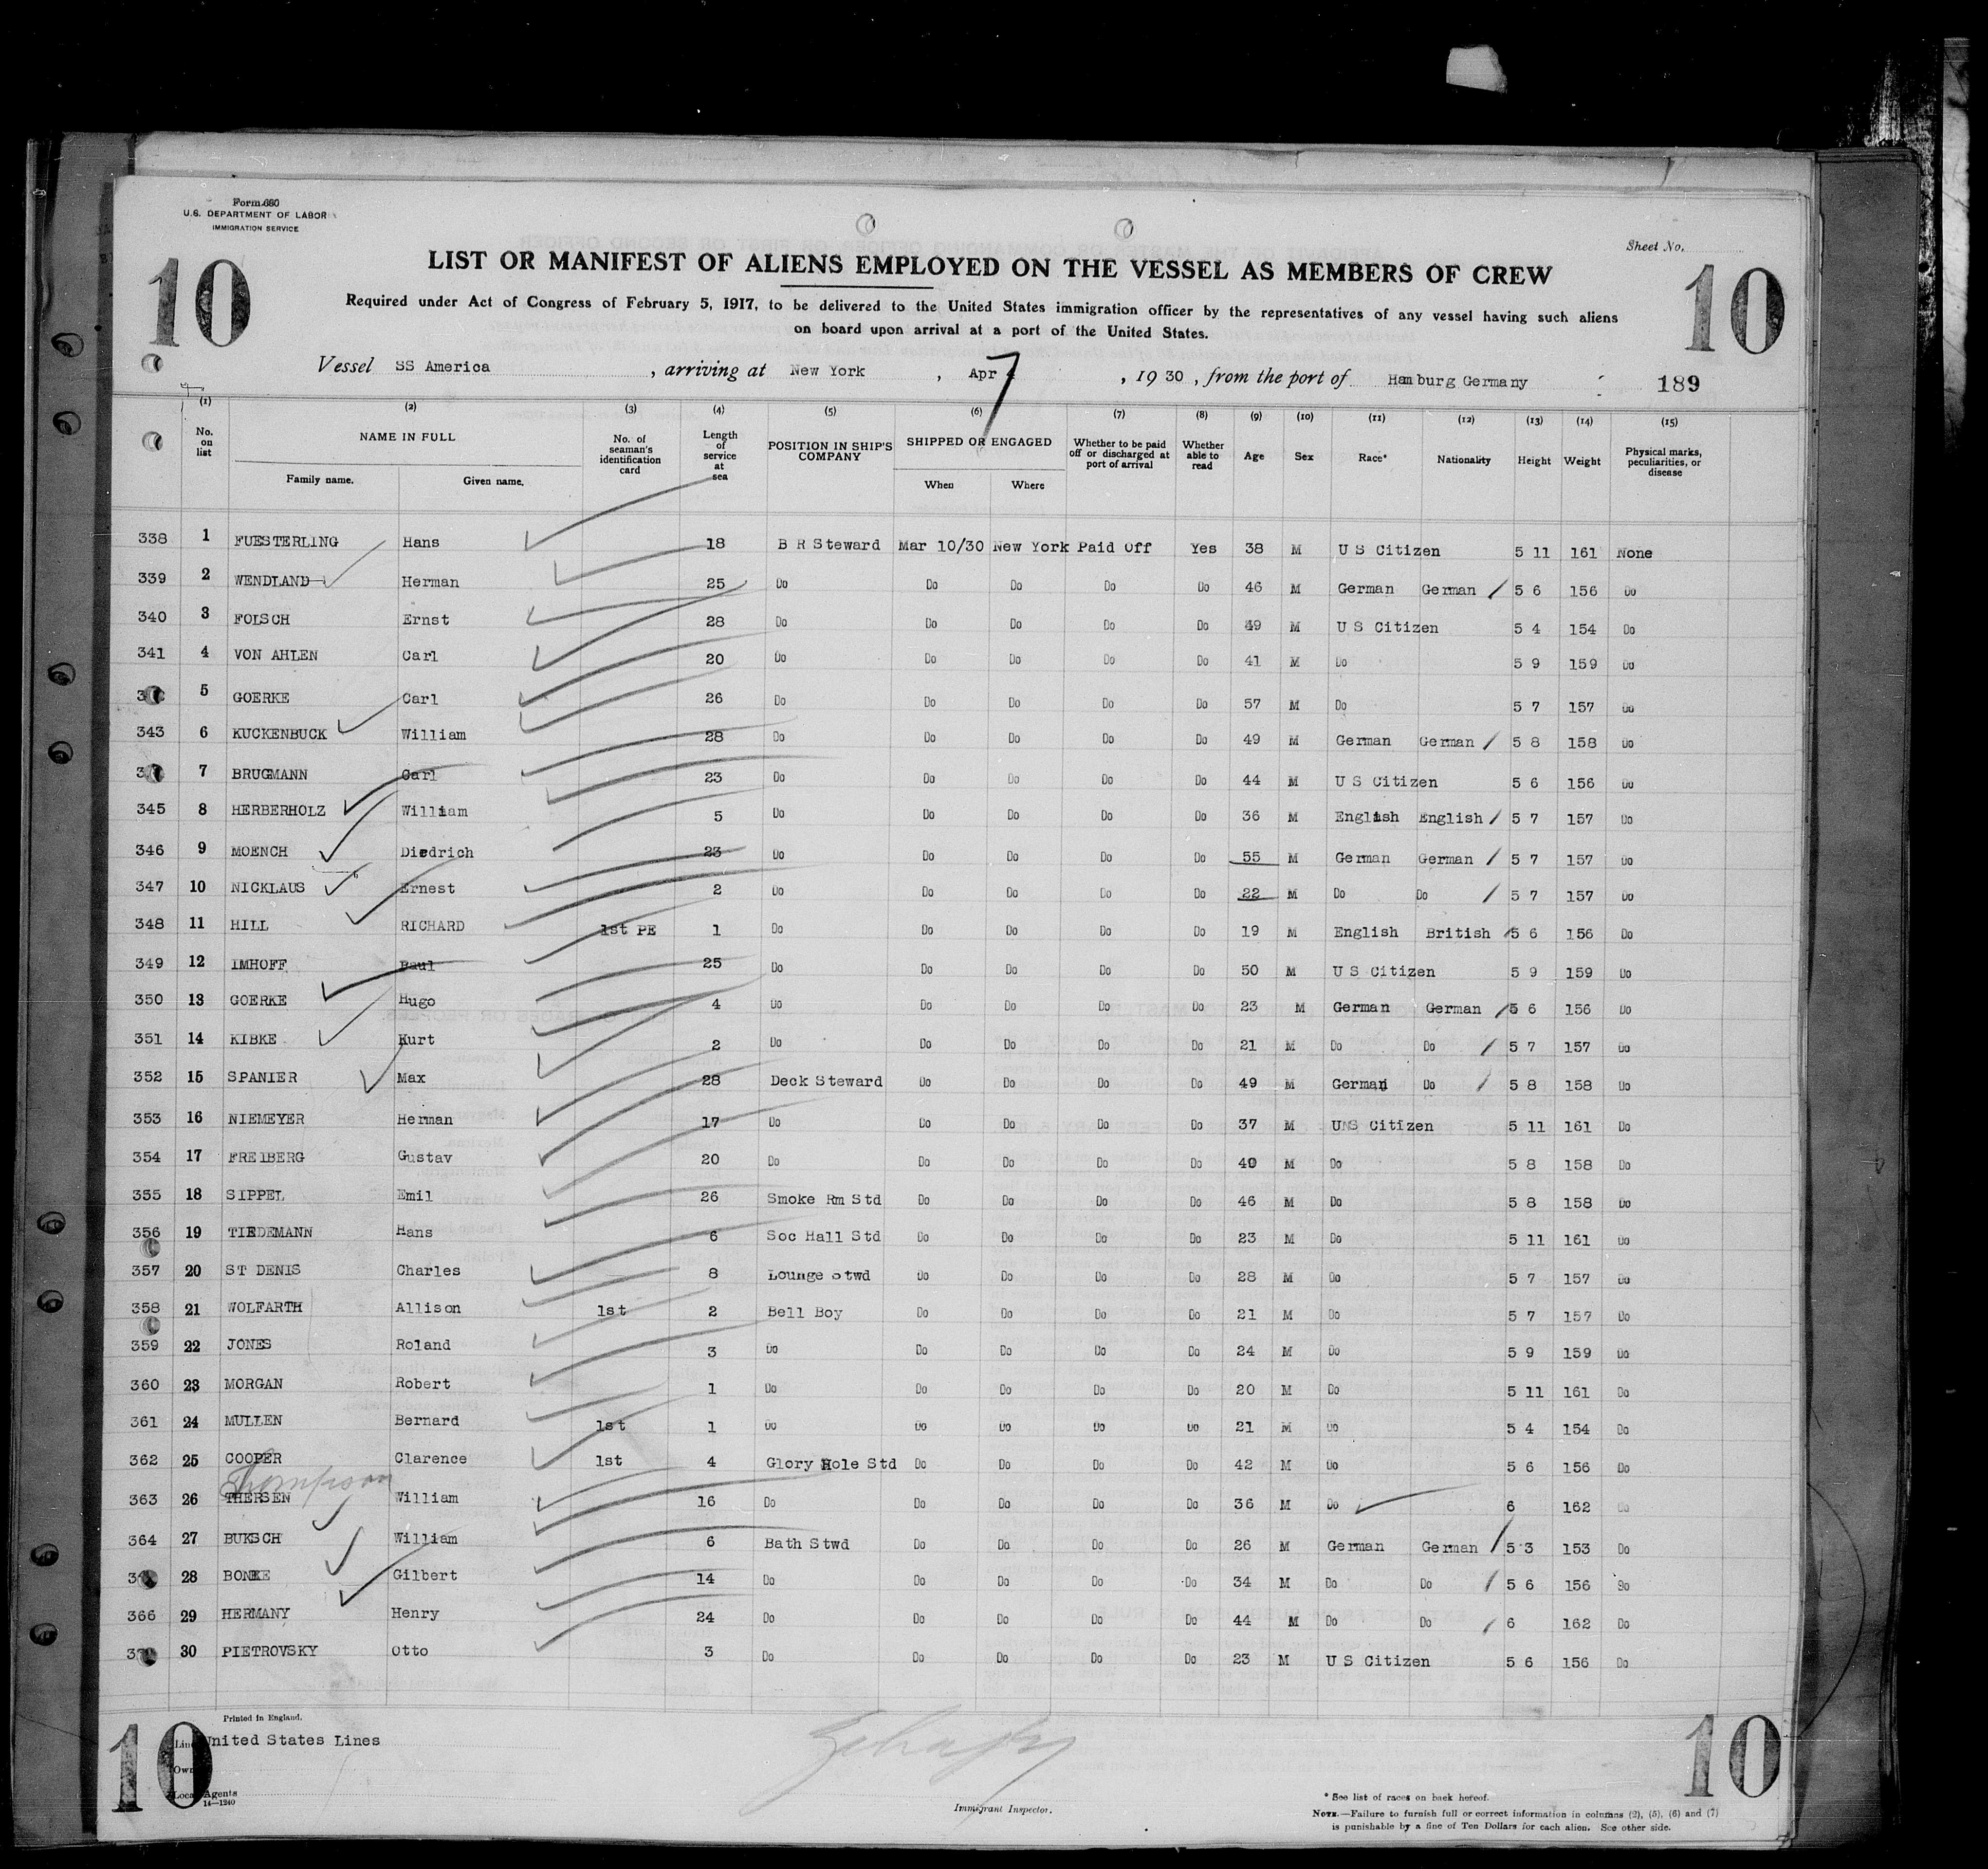 Form 680
U.S. DEPARTMENT OF LABOR
IMMIGRATION SERVICE
Sheet No.
10 10
LIST OR MANIFEST OF ALIENS EMPLOYED ON THE VESSEL AS MEMBERS OF CREW
Required under Act of Congress of February 5, 1917, to be delivered to the United States immigration officer by the representatives of any vessel having such aliens
on board upon arrival at a port of the United States.
Vessel SS America , arriving at New York , Apr 7 , 1930 , from the port of Hamburg Germany 189
(1) (2) (3) (4) (5) (6) (7) (8) (9) (10) (11) (12) (13) (14) (15)
No. on list NAME IN FULL Family name. Given name. No. of seaman's identification card Length of service at sea POSITION IN SHIP'S COMPANY SHIPPED OR ENGAGED When Where Whether to be paid off or discharged at port of arrival Whether able to read Age Sex Race* Nationality Height Weight Physical marks, peculiarities, or disease
338 1 FUESTERLING Hans 18 B R Steward Mar 10/30 New York Paid Off Yes 38 M U S Citizen 5 11 161 None
339 2 WENDLAND Herman 25 Do Do Do Do Do 46 M German German 5 6 156 Do
340 3 FOLSCH Ernst 28 Do Do Do Do Do 49 M U S Citizen 5 4 154 Do
341 4 VON AHLEN Carl 20 Do Do Do Do Do 41 M Do 5 9 159 Do
5 GOERKE Carl 26 Do Do Do Do Do 57 M Do 5 7 157 Do
343 6 KUCKENBUCK William 28 Do Do Do Do Do 49 M German German 5 8 158 Do
7 BRUGMANN Carl 23 Do Do Do Do Do 44 M U S Citizen 5 6 156 Do
345 8 HERBERHOLZ William 5 Do Do Do Do Do 36 M English English 5 7 157 Do
346 9 MOENCH Diedrich 23 Do Do Do Do Do 55 M German German 5 7 157 Do
347 10 NICKLAUS Ernest 2 Do Do Do Do Do 22 M Do Do 5 7 157 Do
348 11 HILL RICHARD 1st PE 1 Do Do Do Do Do 19 M English British 5 6 156 Do
349 12 IMHOFF Paul 25 Do Do Do Do Do 50 M U S Citizen 5 9 159 Do
350 13 GOERKE Hugo 4 Do Do Do Do Do 23 M German German 5 6 156 Do
351 14 KIBKE Kurt 2 Do Do Do Do Do 21 M Do Do 5 7 157 Do
352 15 SPANIER Max 28 Deck Steward Do Do Do Do 49 M German Do 5 8 158 Do
353 16 NIEMEYER Herman 17 Do Do Do Do Do 37 M U S Citizen 5 11 161 Do
354 17 FREIBERG Gustav 20 Do Do Do Do Do 40 M Do 5 8 158 Do
355 18 SIPPEL Emil 26 Smoke Rm Std Do Do Do Do 46 M Do 5 8 158 Do
356 19 TIEDEMANN Hans 6 Soc Hall Std Do Do Do Do 23 M Do 5 11 161 Do
357 20 ST DENIS Charles 8 Lounge Stwd Do Do Do Do 28 M Do 5 7 157 Do
358 21 WOLFARTH Allison 1st 2 Bell Boy Do Do Do Do 21 M Do 5 7 157 Do
359 22 JONES Roland 3 Do Do Do Do Do 24 M Do 5 9 159 Do
360 23 MORGAN Robert 1 Do Do Do Do Do 20 M Do 5 11 161 Do
361 24 MULLEN Bernard 1st 1 Do Do Do Do Do 21 M Do 5 4 154 Do
362 25 COOPER Clarence 1st 4 Glory Hole Std Do Do Do Do 42 M Do 5 6 156 Do
Thompson
363 26 THERSEN William 16 Do Do Do Do Do 36 M Do 6 162 Do
364 27 BUKSCH William 6 Bath Stwd Do Do Do Do 26 M German German 5 3 153 Do
28 BONKE Gilbert 14 Do Do Do Do Do 34 M Do Do 5 6 156 So
366 29 HERMANY Henry 24 Do Do Do Do Do 44 M Do Do 6 162 Do
30 PIETROVSKY Otto 3 Do Do Do Do Do 23 M U S Citizen 5 6 156 Do
10 10
Printed in England.
Line United States Lines
Own
Local Agents
14—1240
Immigrant Inspector.
* See list of races on back hereof.
NOTE.—Failure to furnish full or correct information in columns (2), (5), (6) and (7)
is punishable by a fine of Ten Dollars for each alien. See other side.